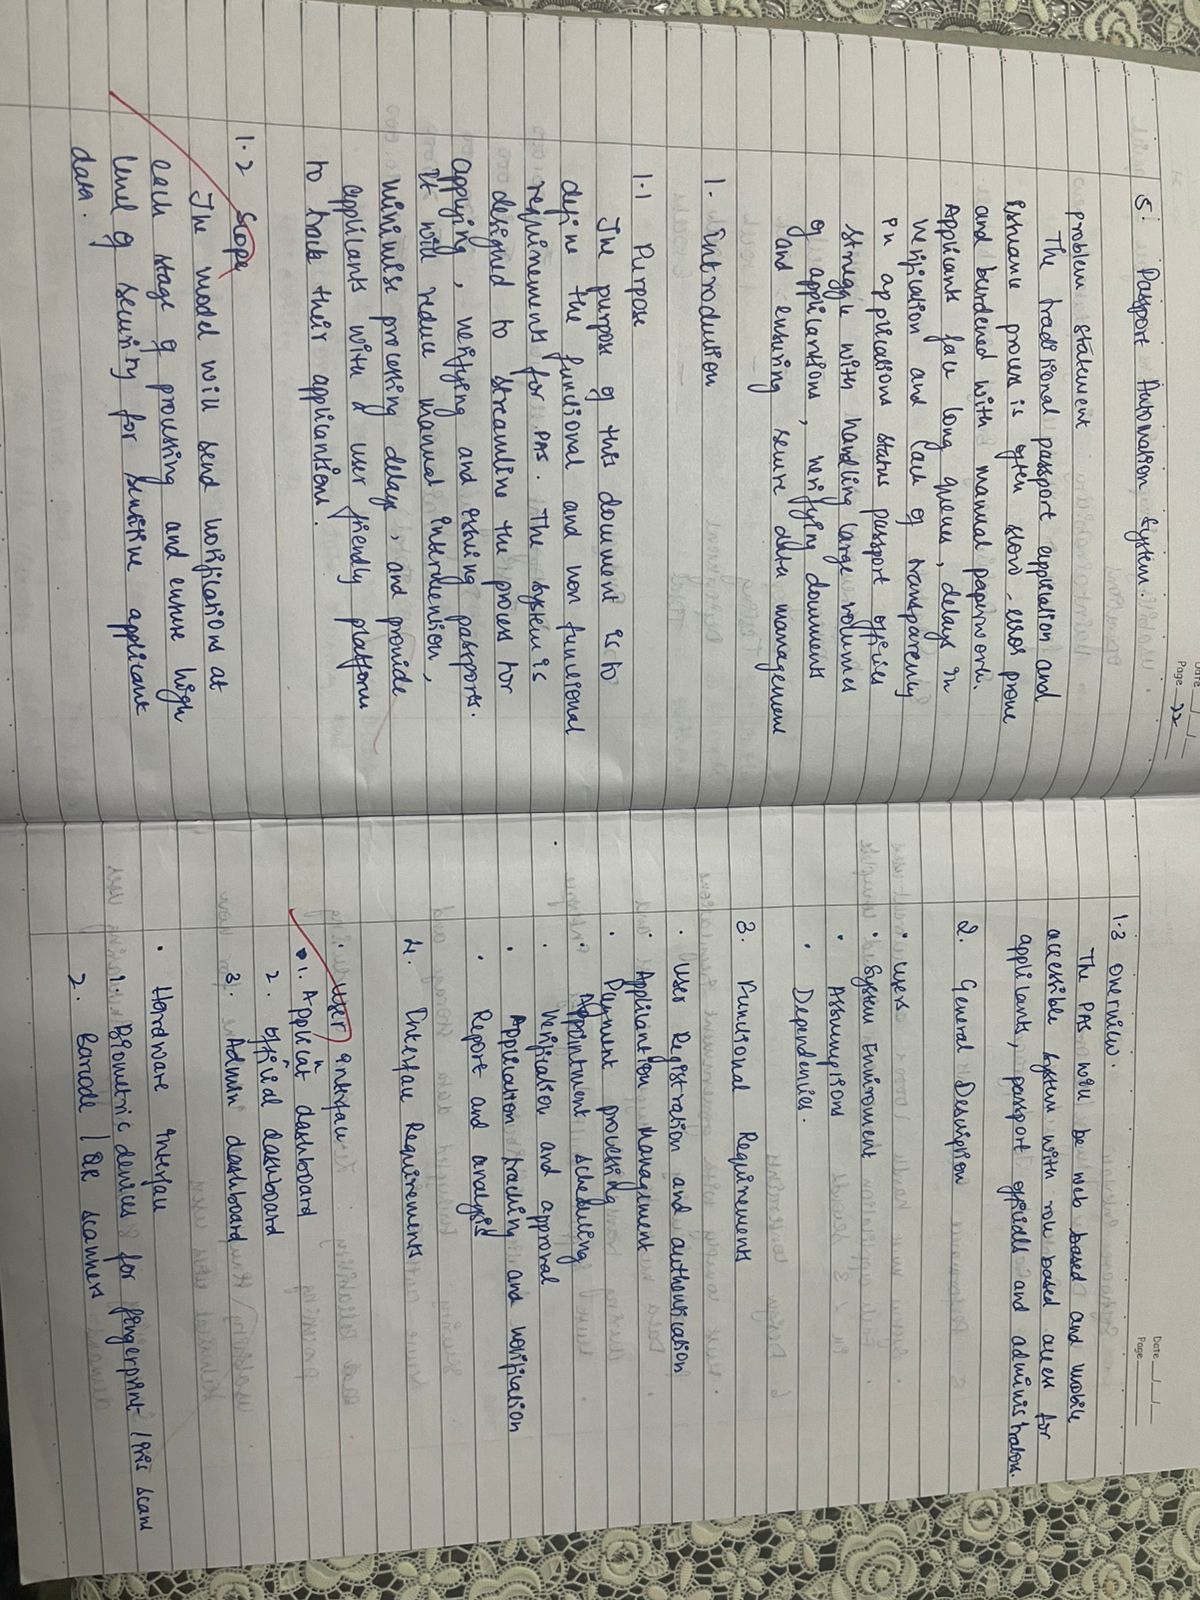 Date __/__/__
Page 22
5. Passport Automation System.
problem statement
The traditional passport application and
issuance process is often slow, error prone
and burdened with manual paperwork.
Applicants face long queue, delays in
verification and lack of transparency
in applications status passport offices
struggle with handling large volumes
of applications, verifying documents
and ensuring secure data management
1. Introduction
1.1 Purpose
The purpose of this document is to
define the functional and non functional
requirements for PAS. The system is
designed to streamline the process for
applying, verifying and issuing passports.
It will reduce manual intervention,
minimise processing delays, and provide
applicants with a user friendly platform
to track their applications.
1.2 Scope
The model will send notifications at
each stage of processing and ensure high
level of security for sensitive applicant
data.
Date __/__/__
Page
1.3 overview.
The PAS will be web based and mobile
accessible system with role based access for
applicants, passport officials and administrators.
2. General Description
• users
• System Environment
• Assumptions
• Dependencies.
3. Functional Requirements
• User Registration and authentication
• Application management
• Payment processing
• Appointment scheduling
• Verification and approval
• Application tracking and notification
• Report and analysis
4. Interface Requirements
• User interface
1. Applicat dashboard
2. official dashboard
3. Admin dashboard
• Hardware interface
1. Biometric devices for fingerprint / iris scans
2. Barcode / QR scanners